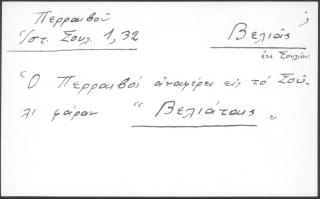 Περραιβοῦ
Ἱστ. Σουλ. 1,32
Βελιάτ;
ἐκ Σουλίου
Ὁ Περραιβός ἀναφέρει εἰς τό Σού-
λι φάραν "Βελιάτους"